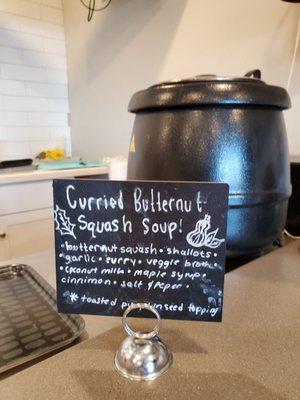 Curried Butternut
Squash Soup!
• butternut squash • shallots •
garlic • curry • veggie broth •
• coconut milk • maple syrup •
cinnamon • salt & peper
* toasted pumpkinseed topping